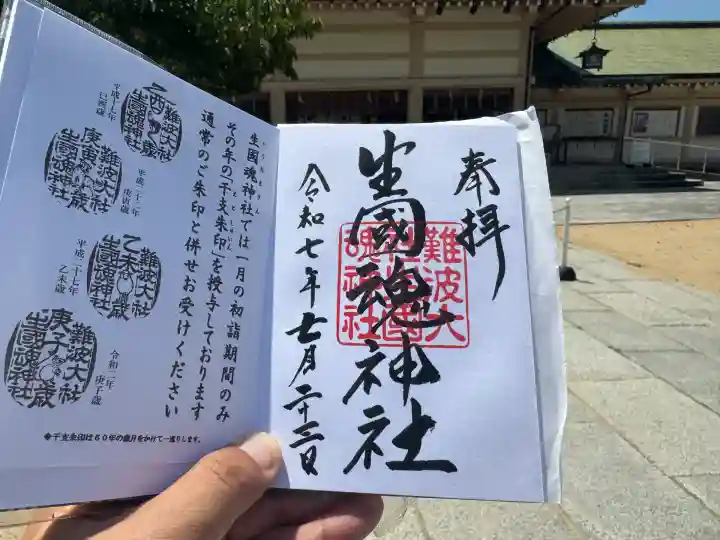 奉拝
生國魂神社
難波大
社生國
魂神社
令和七年七月二十三日
生国魂神社では一月の初詣期間のみ
いくたまじんじゃ
その年の「干支朱印」を授与しております
えとしゅいん
通常のご朱印と併せお受けください
乙酉歳
難波大社
生國魂神社
平成十七年
乙酉歳
庚寅歳
難波大社
生國魂神社
平成二十二年
庚寅歳
乙未歳
難波大社
生國魂神社
平成二十七年
乙未歳
庚子歳
難波大社
生國魂神社
令和二年
庚子歳
◆干支朱印は60年の歳月をかけて一巡りします。